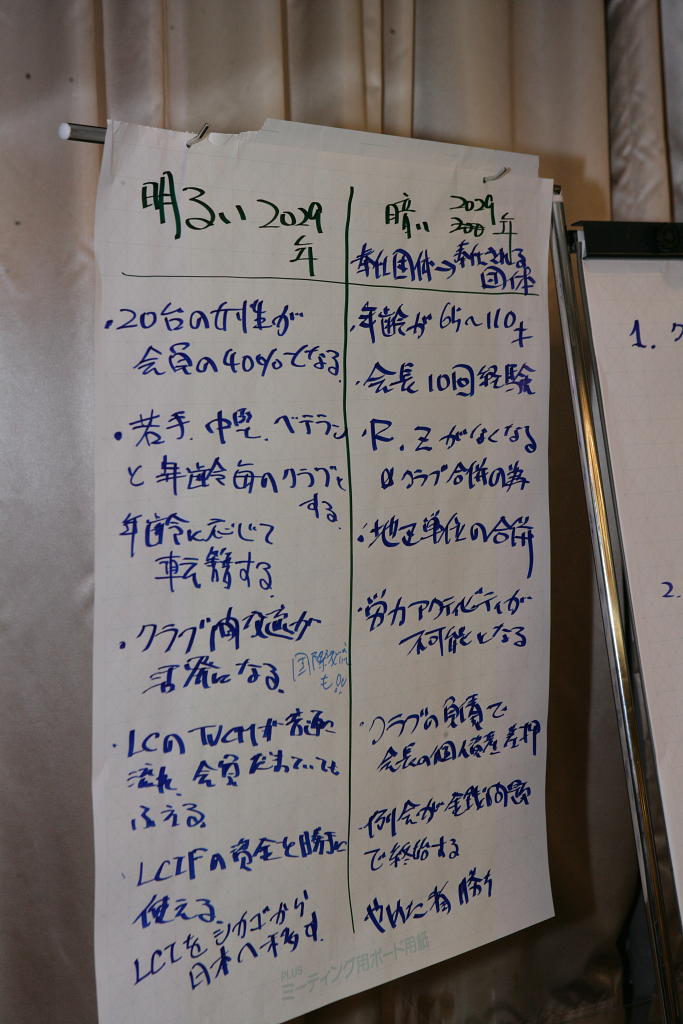 明るい 2029
年
・20台の女性が
会員の40%となる
・若手、中堅、ベテラン
と年齢毎のクラブと
する
年齢に応じて
転籍する
・クラブ間交流が
活発になる
国際交流
も!!
・LCのTVCMが普通に
流れ 会員だまっていても
ふえる
・LCIFの資金を勝手に
使える
LCIをシカゴから
日本へ移す
暗い 2029
年
奉仕団体→奉仕される
団体
・年齢が 65〜110才
・会長10回経験
・R、Zがなくなる
クラブ合併の為
・地区単位の合併
・労力アクティビティが
不可能となる
・クラブの負債で
会長の個人資産差押
・例会が金銭問題
で終始する
やめた者 勝ち
PLUS
ミーティング用ボード用紙
1. ク
2.